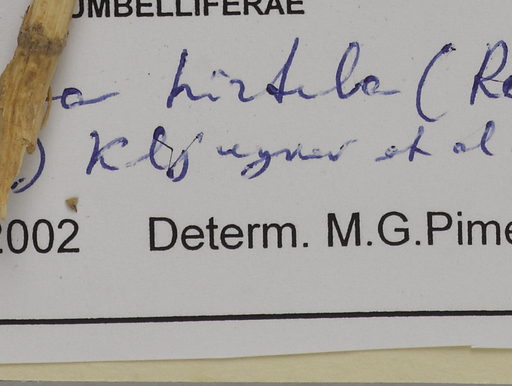 UMBELLIFERAE
a hirtula (R
) Kljuykov et al
2002 Determ. M.G.Pime